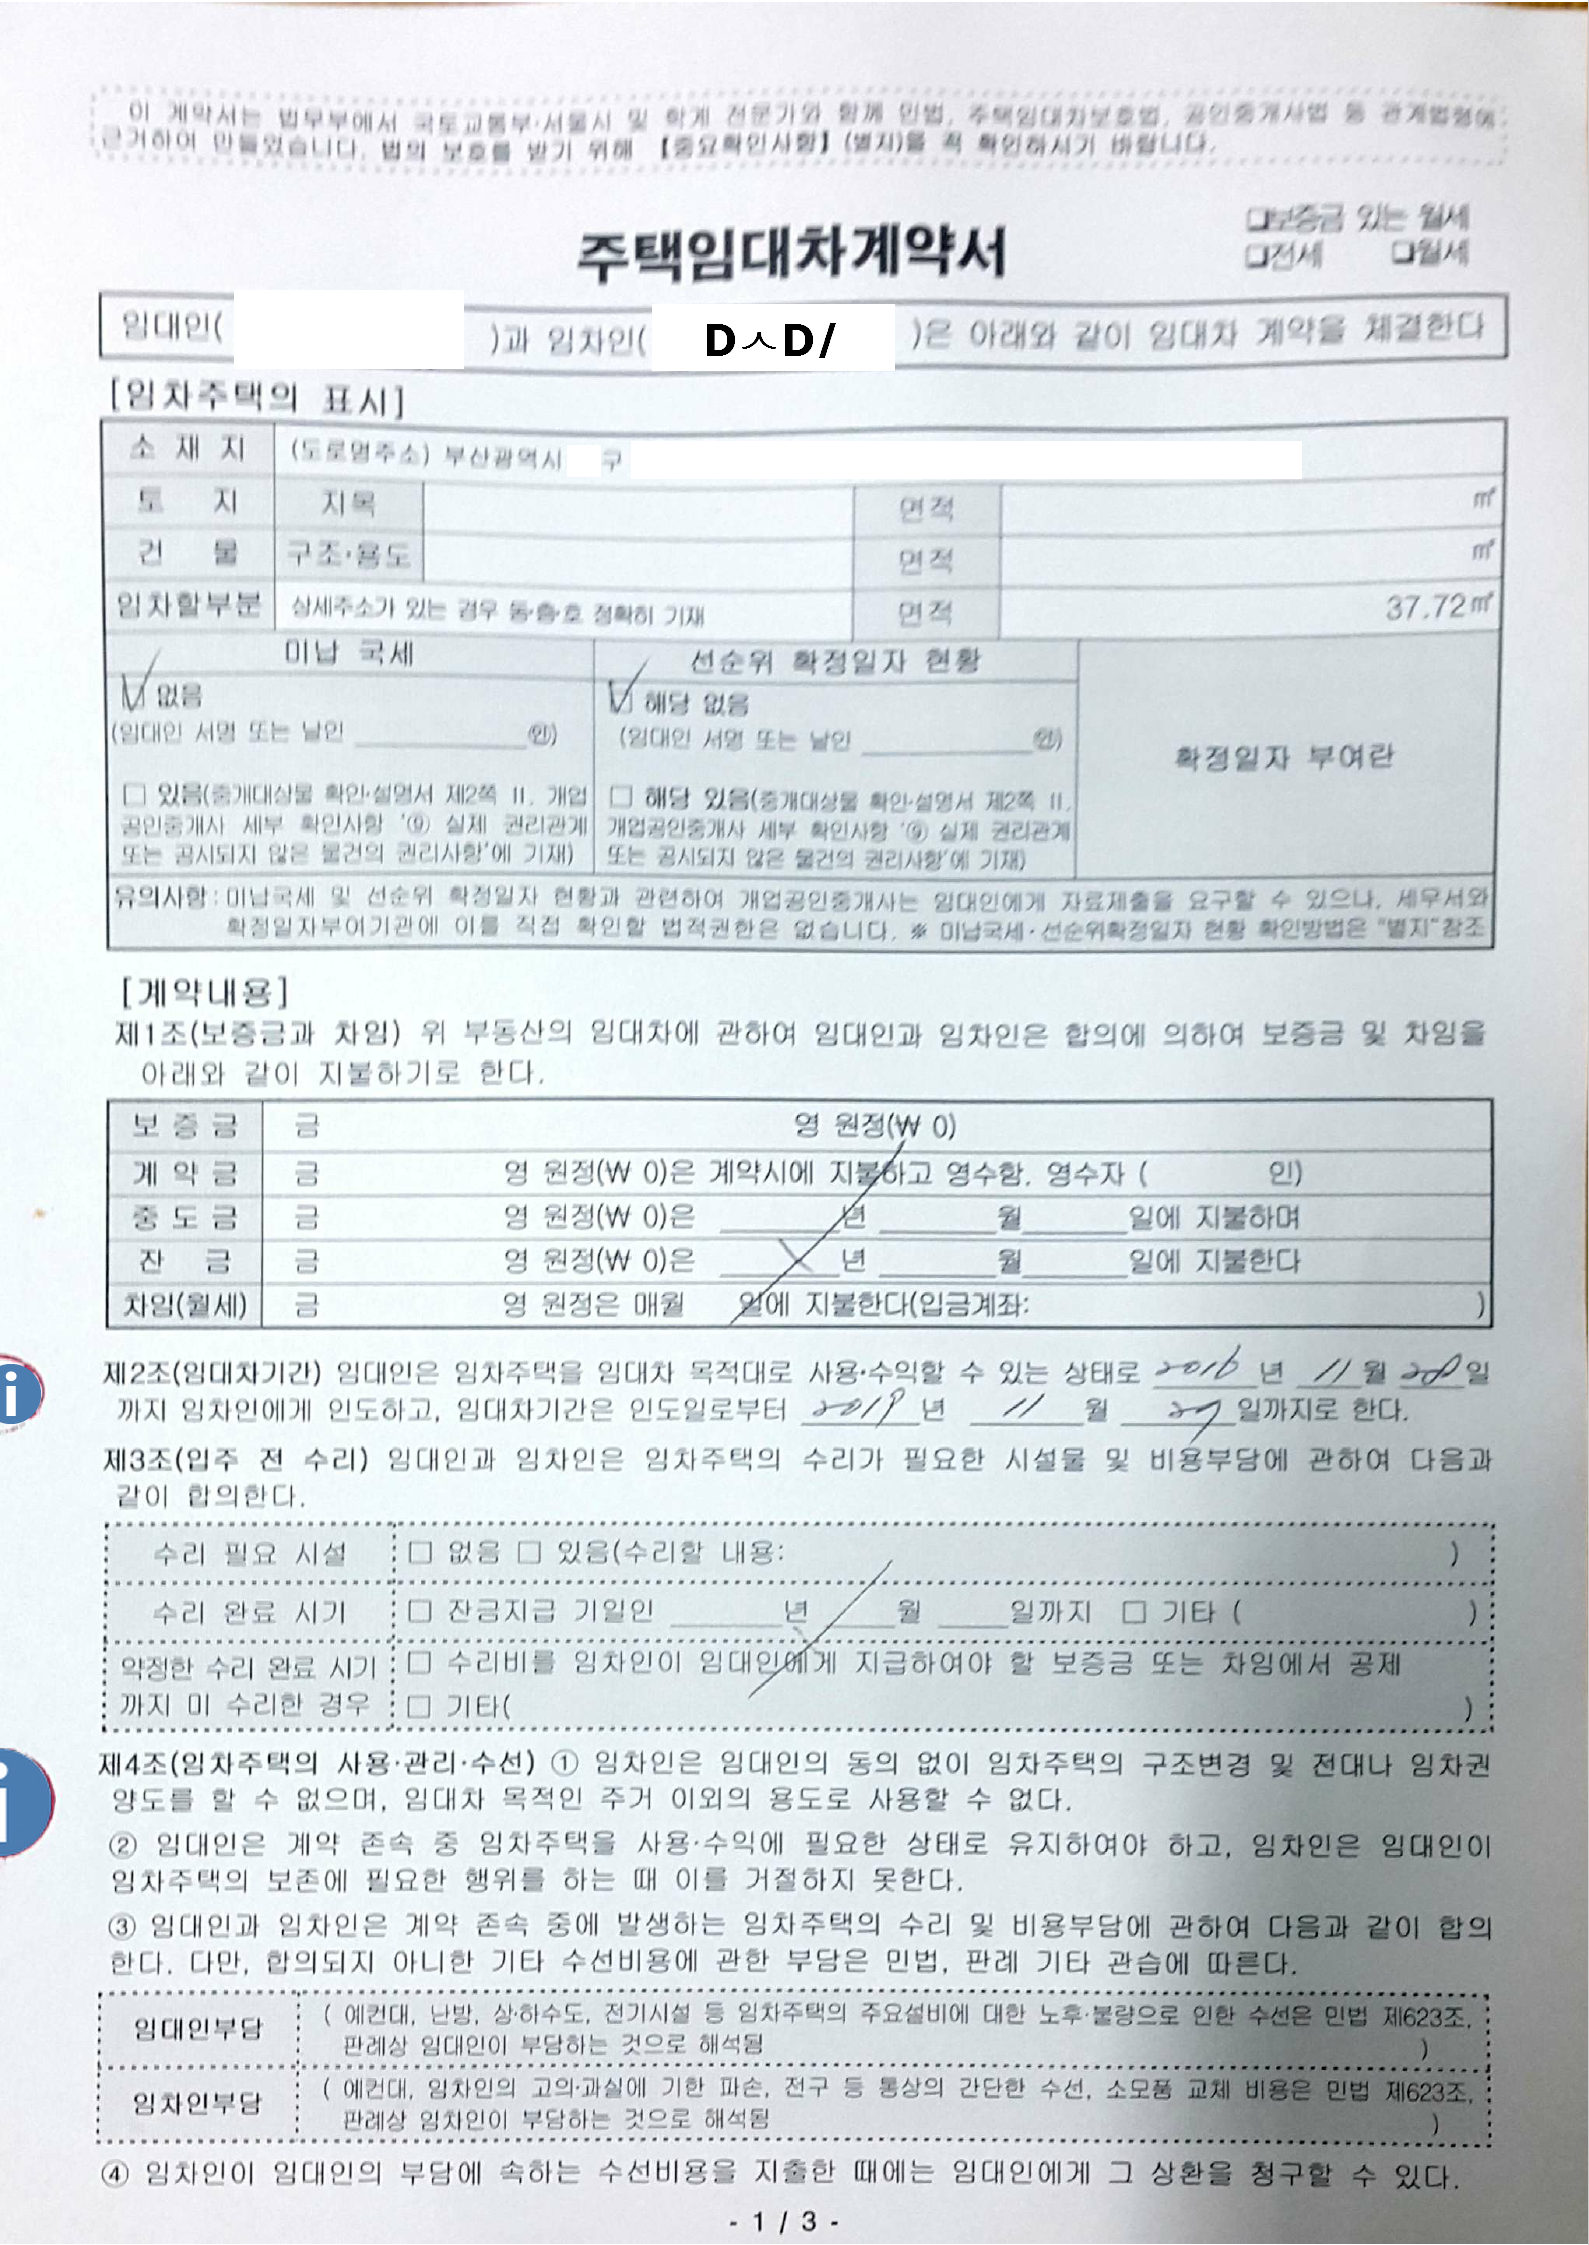 이 계약서는 법무부에서 국토교통부·서울시 및 학계 전문가와 함께 민법, 주택임대차보호법, 공인중개사법 등 관계법령에
근거하여 만들었습니다. 법의 보호를 받기 위해 【중요확인사항】(별지)을 꼭 확인하시기 바랍니다.
❏보증금 있는 월세
주택임대차계약서
❏전세 ❏월세
임대인( )과 임차인( DㅅD/ )은 아래와 같이 임대차 계약을 체결한다
[임차주택의 표시]
소 재 지 (도로명주소) 부산광역시 구
토 지 지목 면적 ㎡
건 물 구조·용도 면적 ㎡
임차할부분 상세주소가 있는 경우 동·층·호 정확히 기재 면적 37.72㎡
미납 국세 선순위 확정일자 현황
☑ 없음 ☑ 해당 없음
(임대인 서명 또는 날인 ________㊞) (임대인 서명 또는 날인 ________㊞)
확정일자 부여란
□ 있음(중개대상물 확인·설명서 제2쪽 Ⅱ. 개업 □ 해당 있음(중개대상물 확인·설명서 제2쪽 Ⅱ.
공인중개사 세부 확인사항 '⑨ 실제 권리관계 개업공인중개사 세부 확인사항 '⑨ 실제 권리관계
또는 공시되지 않은 물건의 권리사항'에 기재) 또는 공시되지 않은 물건의 권리사항'에 기재)
유의사항 : 미납국세 및 선순위 확정일자 현황과 관련하여 개업공인중개사는 임대인에게 자료제출을 요구할 수 있으나, 세무서와
확정일자부여기관에 이를 직접 확인할 법적권한은 없습니다. ※ 미납국세·선순위확정일자 현황 확인방법은 "별지"참조
[계약내용]
제1조(보증금과 차임) 위 부동산의 임대차에 관하여 임대인과 임차인은 합의에 의하여 보증금 및 차임을
아래와 같이 지불하기로 한다.
보 증 금 금 영 원정(₩ 0)
계 약 금 금 영 원정(₩ 0)은 계약시에 지불하고 영수함. 영수자 ( 인)
중 도 금 금 영 원정(₩ 0)은 ______년 ______월______일에 지불하며
잔 금 금 영 원정(₩ 0)은 ______년 ______월______일에 지불한다
차임(월세) 금 영 원정은 매월 일에 지불한다(입금계좌: )
제2조(임대차기간) 임대인은 임차주택을 임대차 목적대로 사용·수익할 수 있는 상태로 년 11 월 28 일
까지 임차인에게 인도하고, 임대차기간은 인도일로부터 2019 년 11 월 27 일까지로 한다.
제3조(입주 전 수리) 임대인과 임차인은 임차주택의 수리가 필요한 시설물 및 비용부담에 관하여 다음과
같이 합의한다.
수리 필요 시설 □ 없음 □ 있음(수리할 내용: )
수리 완료 시기 □ 잔금지급 기일인 ______년 ____월 ____일까지 □ 기타 ( )
약정한 수리 완료 시기 □ 수리비를 임차인이 임대인에게 지급하여야 할 보증금 또는 차임에서 공제
까지 미 수리한 경우 □ 기타( )
제4조(임차주택의 사용·관리·수선) ① 임차인은 임대인의 동의 없이 임차주택의 구조변경 및 전대나 임차권
양도를 할 수 없으며, 임대차 목적인 주거 이외의 용도로 사용할 수 없다.
② 임대인은 계약 존속 중 임차주택을 사용·수익에 필요한 상태로 유지하여야 하고, 임차인은 임대인이
임차주택의 보존에 필요한 행위를 하는 때 이를 거절하지 못한다.
③ 임대인과 임차인은 계약 존속 중에 발생하는 임차주택의 수리 및 비용부담에 관하여 다음과 같이 합의
한다. 다만, 합의되지 아니한 기타 수선비용에 관한 부담은 민법, 판례 기타 관습에 따른다.
임대인부담 ( 예컨대, 난방, 상·하수도, 전기시설 등 임차주택의 주요설비에 대한 노후·불량으로 인한 수선은 민법 제623조,
판례상 임대인이 부담하는 것으로 해석됨 )
임차인부담 ( 예컨대, 임차인의 고의·과실에 기한 파손, 전구 등 통상의 간단한 수선, 소모품 교체 비용은 민법 제623조,
판례상 임차인이 부담하는 것으로 해석됨 )
④ 임차인이 임대인의 부담에 속하는 수선비용을 지출한 때에는 임대인에게 그 상환을 청구할 수 있다.
- 1 / 3 -